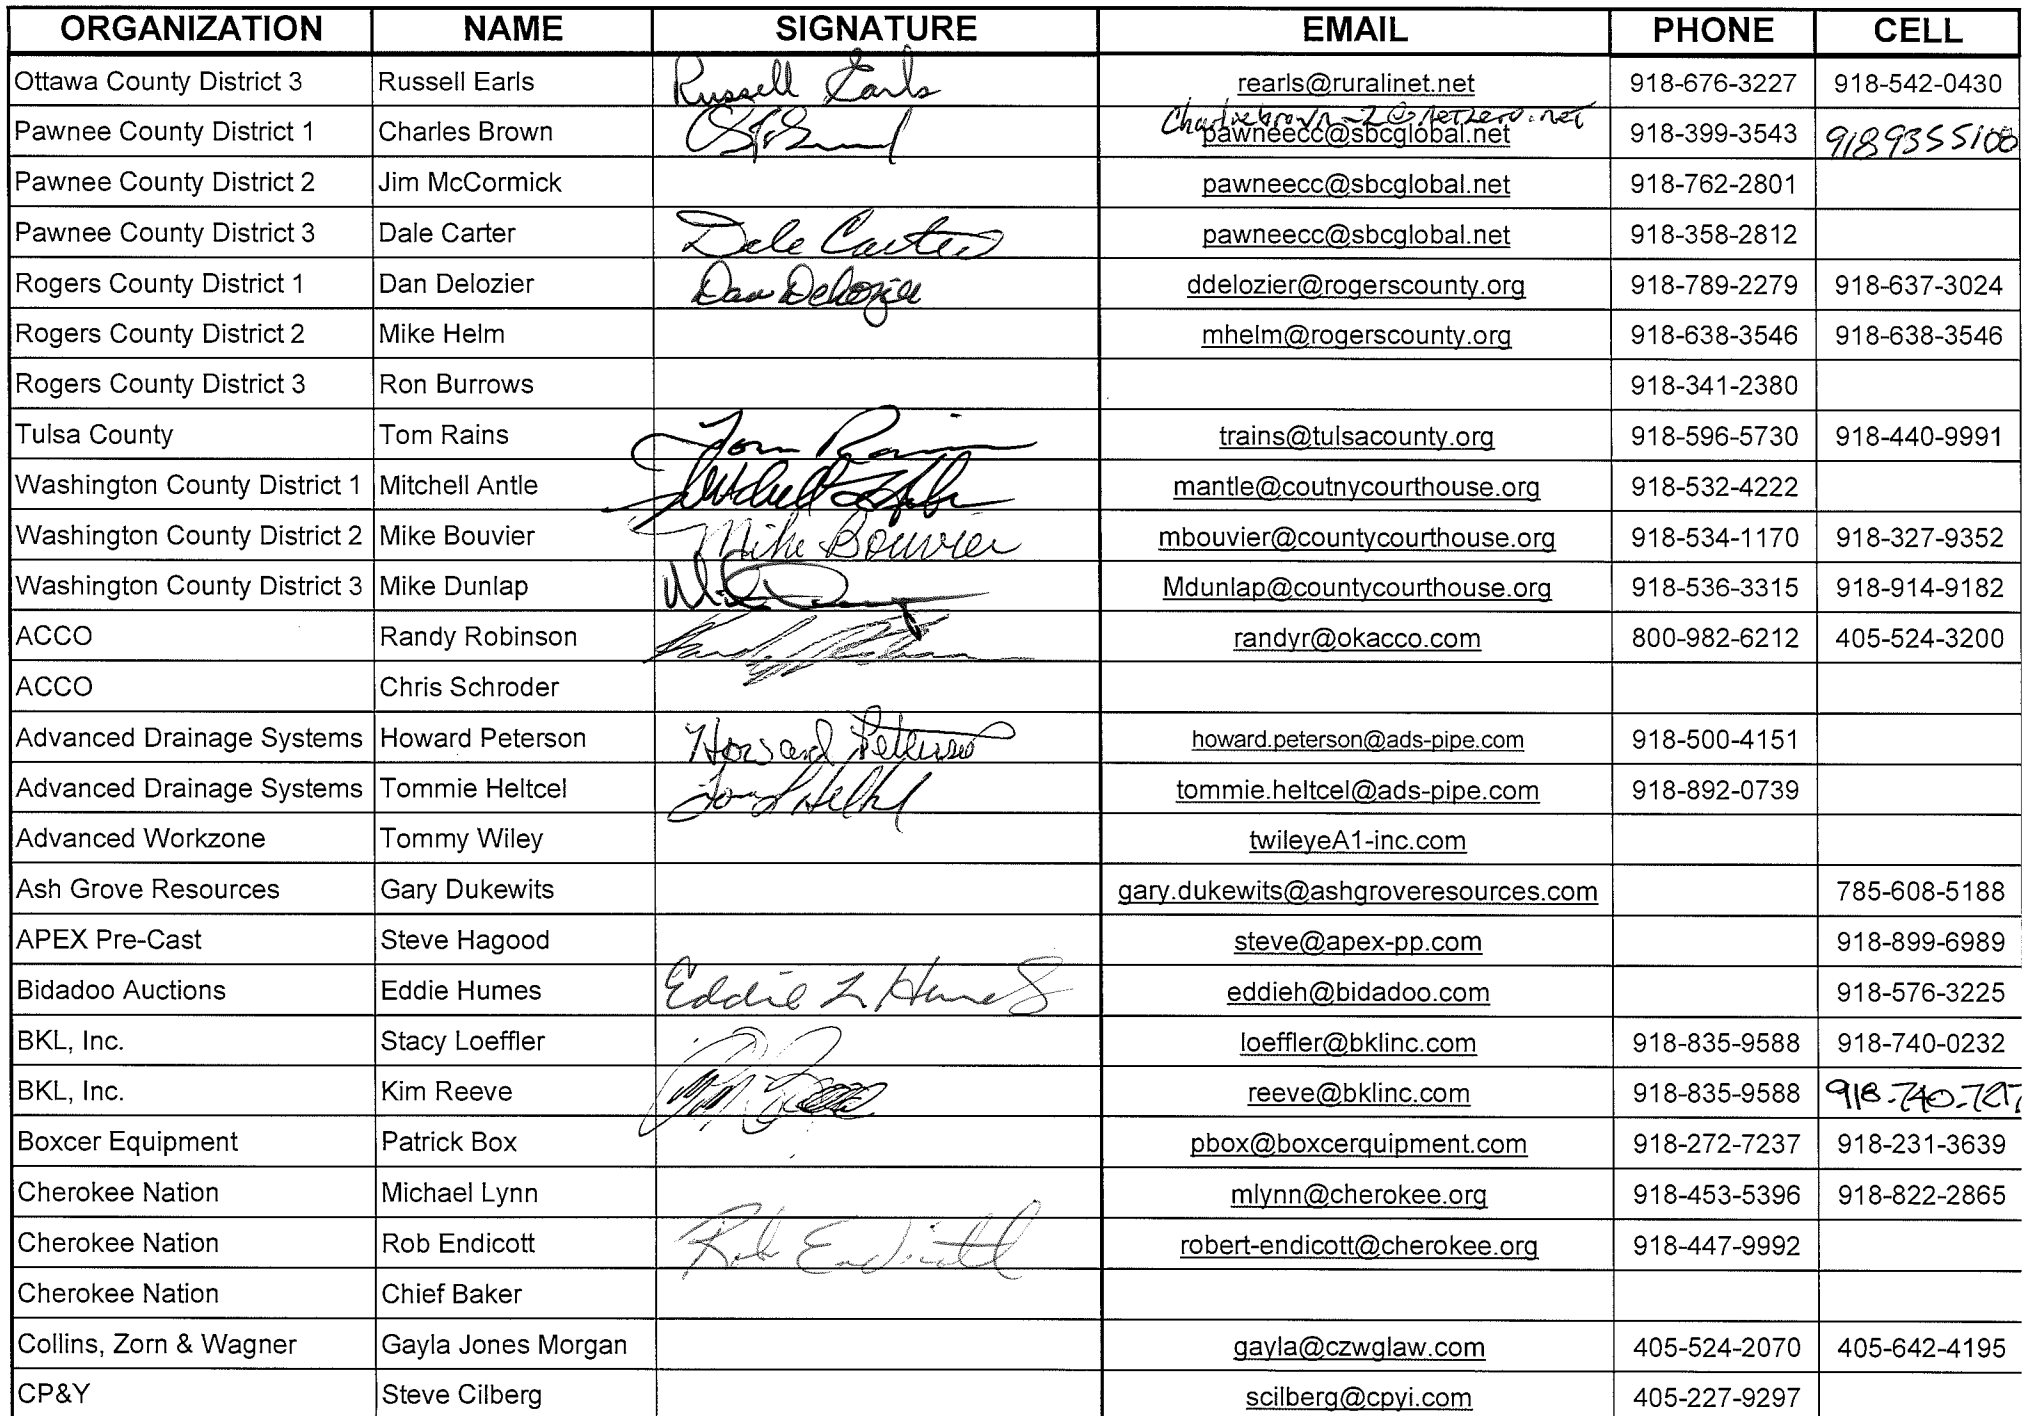 ORGANIZATION NAME SIGNATURE EMAIL PHONE CELL
Ottawa County District 3 Russell Earls Russell Earls rearls@ruralinet.net 918-676-3227 918-542-0430
Charliebrown-2@netzero.net
Pawnee County District 1 Charles Brown pawneecc@sbcglobal.net 918-399-3543 9189355108
Pawnee County District 2 Jim McCormick pawneecc@sbcglobal.net 918-762-2801
Pawnee County District 3 Dale Carter Dale Carter pawneecc@sbcglobal.net 918-358-2812
Rogers County District 1 Dan Delozier Dan Delozier ddelozier@rogerscounty.org 918-789-2279 918-637-3024
Rogers County District 2 Mike Helm mhelm@rogerscounty.org 918-638-3546 918-638-3546
Rogers County District 3 Ron Burrows 918-341-2380
Tulsa County Tom Rains Tom Rains trains@tulsacounty.org 918-596-5730 918-440-9991
Washington County District 1 Mitchell Antle Mitchell Antle mantle@coutnycourthouse.org 918-532-4222
Washington County District 2 Mike Bouvier Mike Bouvier mbouvier@countycourthouse.org 918-534-1170 918-327-9352
Washington County District 3 Mike Dunlap Mdunlap@countycourthouse.org 918-536-3315 918-914-9182
ACCO Randy Robinson Randy Robinson randyr@okacco.com 800-982-6212 405-524-3200
ACCO Chris Schroder
Advanced Drainage Systems Howard Peterson Howard Peterson howard.peterson@ads-pipe.com 918-500-4151
Advanced Drainage Systems Tommie Heltcel tommie.heltcel@ads-pipe.com 918-892-0739
Advanced Workzone Tommy Wiley twileyeA1-inc.com
Ash Grove Resources Gary Dukewits gary.dukewits@ashgroveresources.com 785-608-5188
APEX Pre-Cast Steve Hagood steve@apex-pp.com 918-899-6989
Bidadoo Auctions Eddie Humes Eddie L Humes eddieh@bidadoo.com 918-576-3225
BKL, Inc. Stacy Loeffler loeffler@bklinc.com 918-835-9588 918-740-0232
BKL, Inc. Kim Reeve reeve@bklinc.com 918-835-9588
Boxcer Equipment Patrick Box pbox@boxcerquipment.com 918-272-7237 918-231-3639
Cherokee Nation Michael Lynn mlynn@cherokee.org 918-453-5396 918-822-2865
Cherokee Nation Rob Endicott Rob Endicott robert-endicott@cherokee.org 918-447-9992
Cherokee Nation Chief Baker
Collins, Zorn & Wagner Gayla Jones Morgan gayla@czwglaw.com 405-524-2070 405-642-4195
CP&Y Steve Cilberg scilberg@cpyi.com 405-227-9297